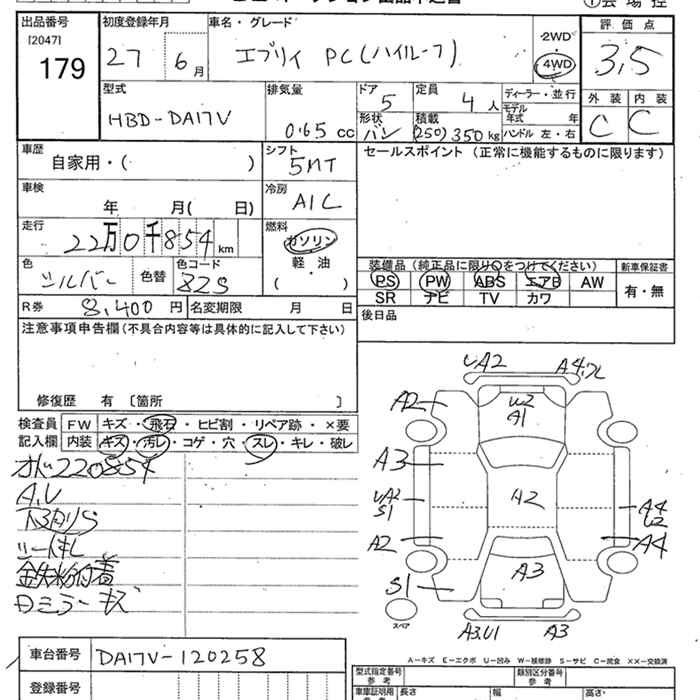 出品番号
[2047]
179
初度登録年月
27年 6月
車名・グレード
エブリイ PC(ハイルーフ)
2WD
4WD
評価点
3,5
型式
HBD-DA17V
排気量
0.65 cc
ドア
5
定員
4 人
形状
バン
積載
(250) 350 kg
ディーラー・並行
モデル年式 年
ハンドル 左・右
外装 内装
C C
車歴
自家用・( )
シフト
5MT
セールスポイント (正常に機能するものに限ります)
車検
年 月( 日)
冷房
A/C
走行
22万0千854km
燃料
ガソリン
軽・油
・
( )
色
シルバー
色替
色コード
Z2S
装備品(純正品に限り○をつけてください)
PS PW ABS エアB AW
SR ナビ TV カワ
新車保証書
有・無
R券 8,400 円
名変期限 月 日
後日品
注意事項申告欄(不具合内容等は具体的に記入して下さい)
修復歴 有 〔箇所 〕
検査員
記入欄
FW キズ・飛石・ヒビ割・リペア跡・×要
内装 キズ・汚レ・コゲ・穴・スレ・キレ・破レ
オド220854
A,U
下廻りS
シートキレ
鉄粉付着
Dミラーキズ
UA2
A4,フレ
A2
U2
A1
A3
UA2
S1
A2
A4
U2
A2
A4
A3
S1
スペア
A3,U1
A3
A-キズ E-エクボ U-凹み W-補修跡 S-サビ C-腐食 XX-交換済
車台番号
DA17V-120258
登録番号
型式指定番号
参考
類別区分番号
参考
車庫証明用
参考
長さ
幅
高さ